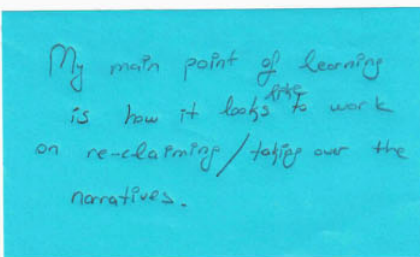 My main point of learning
is how it looks like to work
on re-claiming / taking over the
narratives.